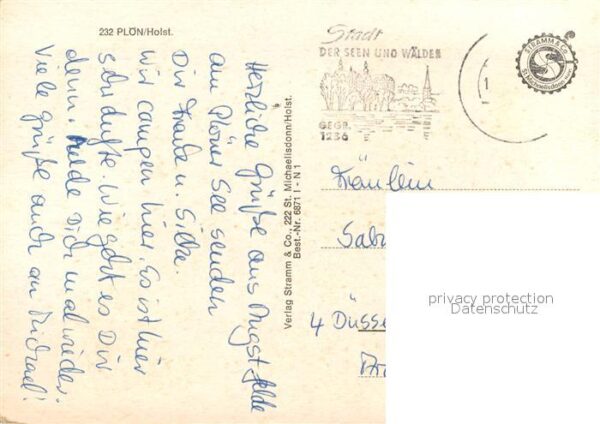 232 PLÖN/Holst.
Herzliche Grüße aus Augstfelde
am Plöner See senden
Dir Frauke u. Silke.
Wir campen hier. Es ist hier
sehr dufte. Wie geht es Dir
denn. Melde Dich mal wieder.
Viele Grüße auch an Michael!
Verlag Stramm & Co., 222 St. Michaelisdonn/Holst.
Best.-Nr. 6871 I - N 1
Stadt
DER SEEN UND WÄLDER
GEGR.
1236
1
STRAMM & Co.
St. Michaelisdonn
Fräulein
4 Düsse
privacy protection
Datenschutz